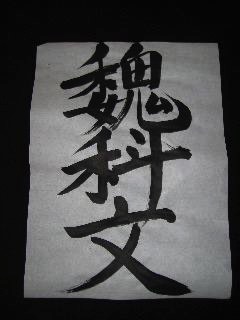 魏科文